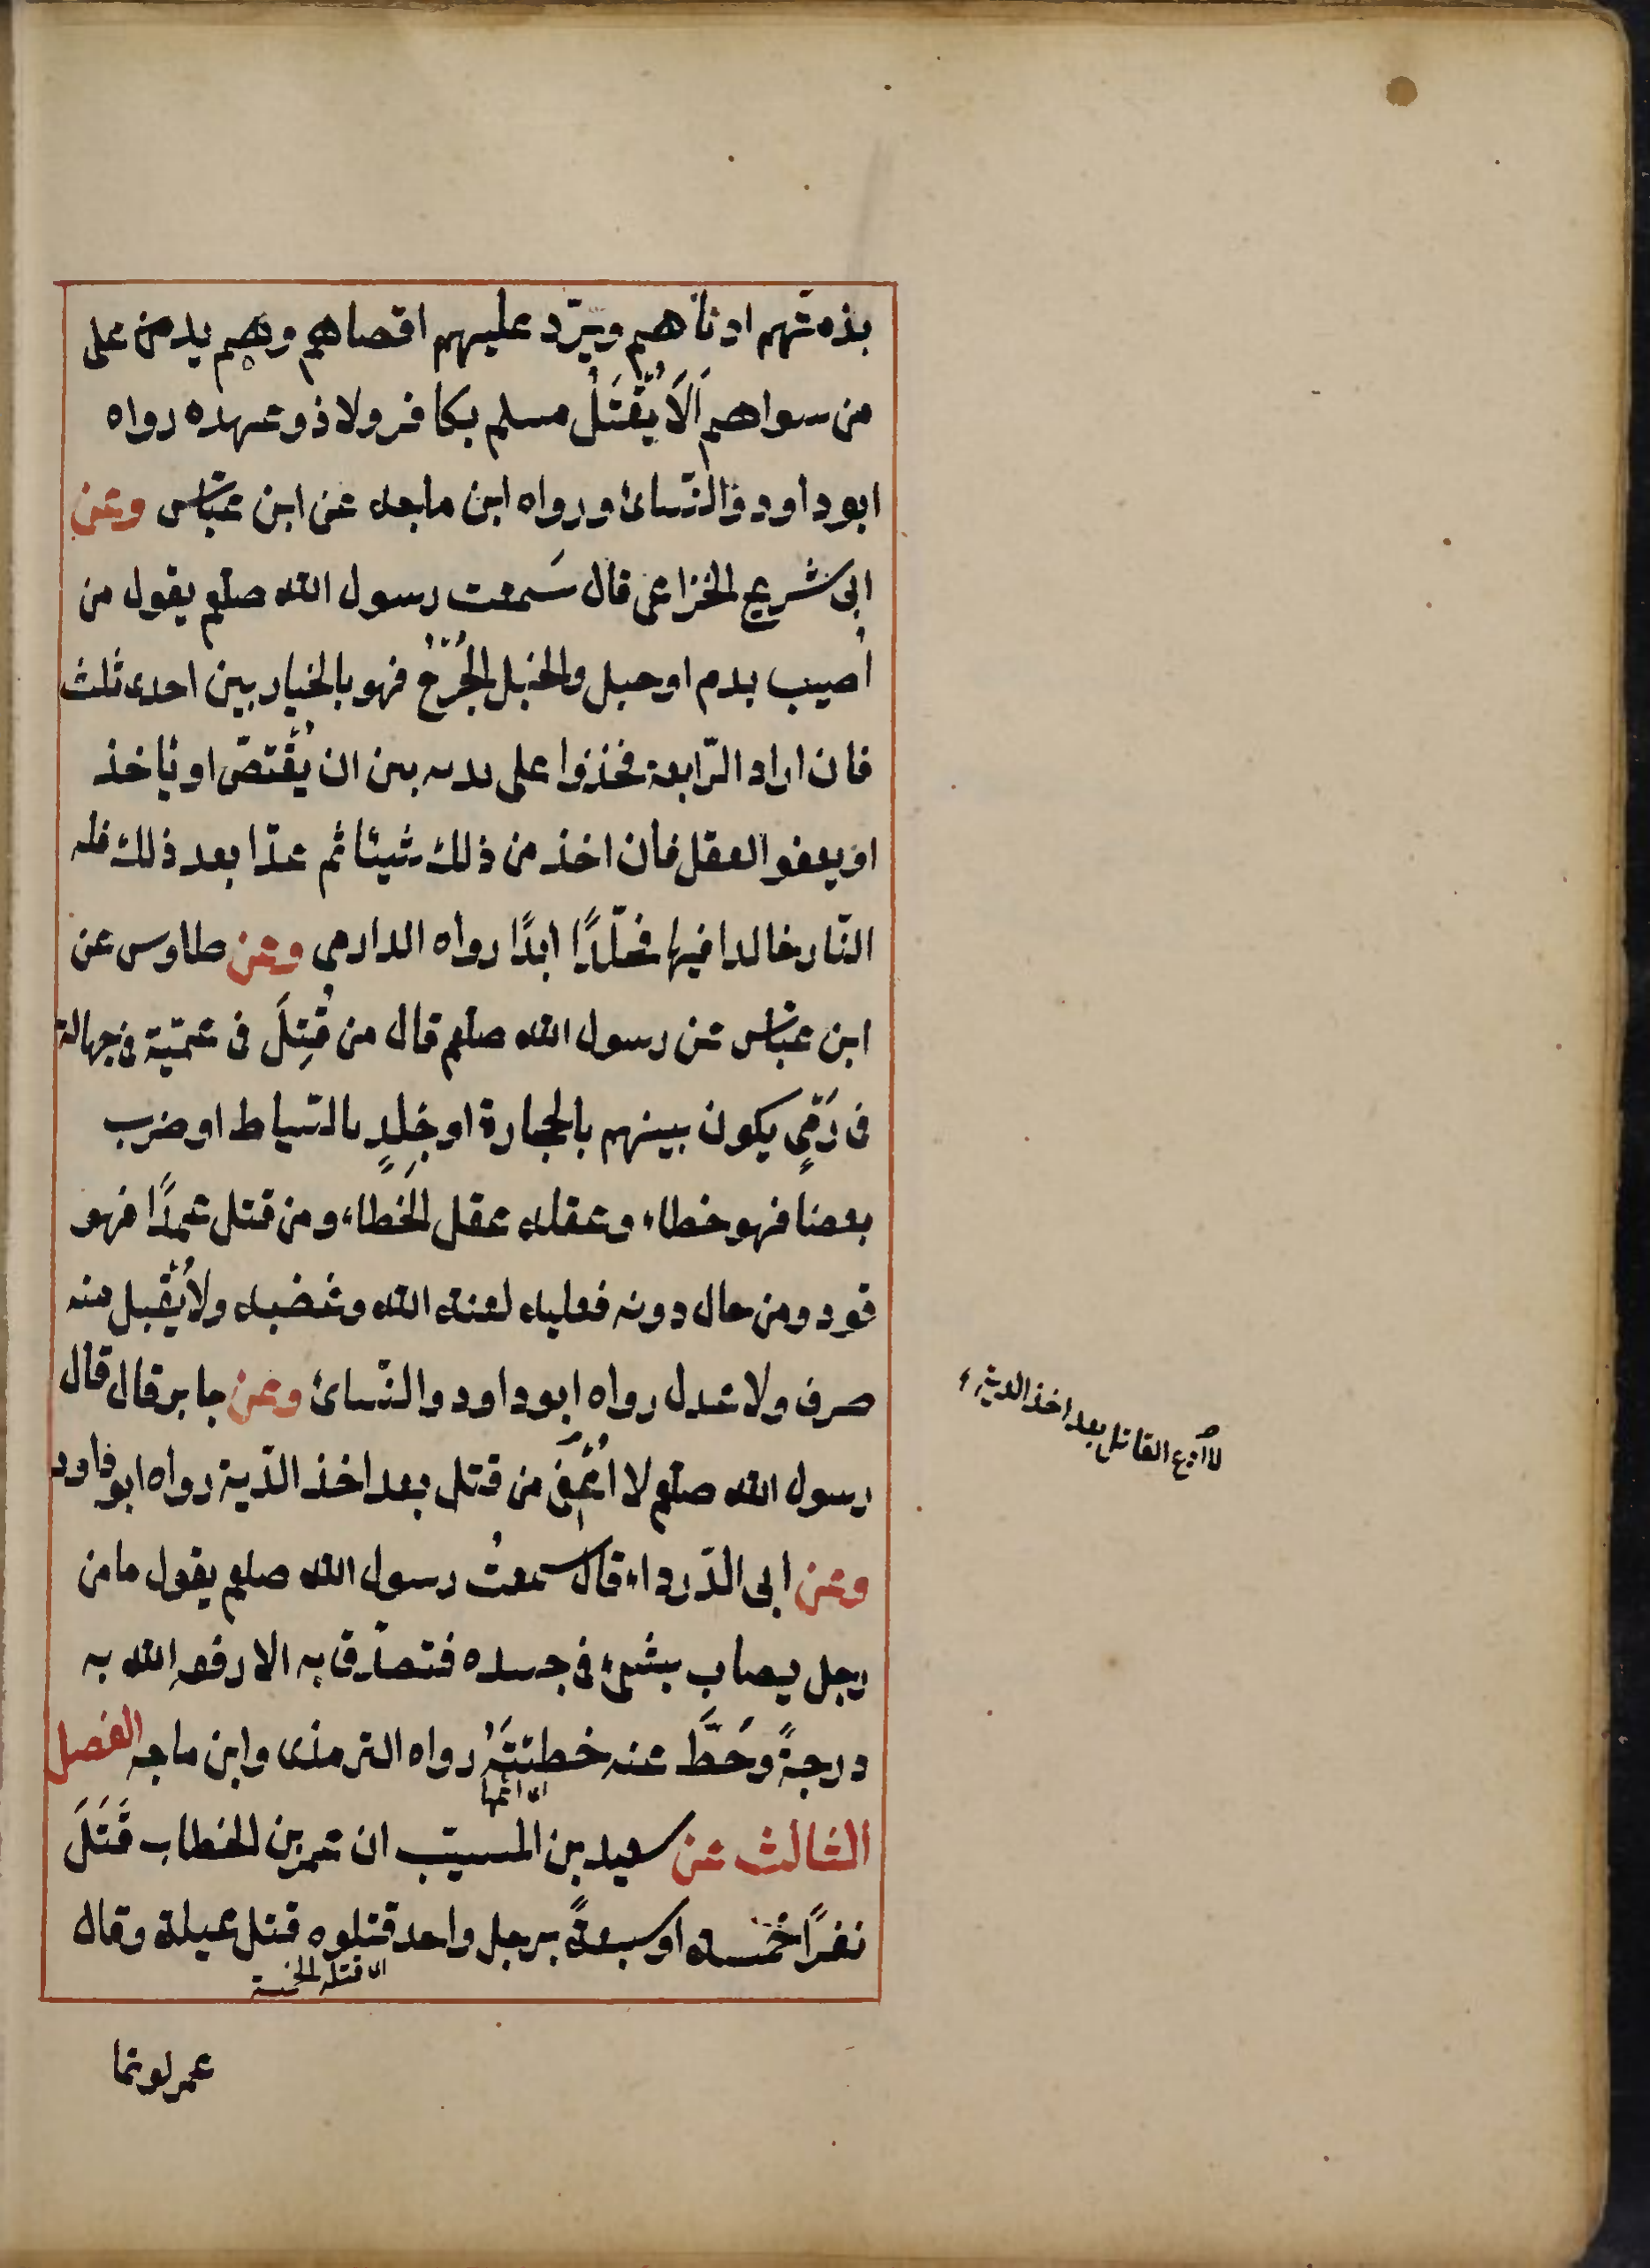 بذمتهم ادناهم ويردّ عليهم اقصاهم وهم يد من على
من سواهم اَلَا يُقْتَلُ مسلم بكافر ولا ذو عهده رواه
ابو داود والنسائ ورواه ابن ماجه عن ابن عباس وعن
ابى شريح الخزاعى قال سَمعت رسول الله صلعم يقول من
اُصيب بدم او خبل والخبل الجُرْحُ فهو بالخيار بين احدى ثلث
فان اراد الرّابعة فخذوا على يديه بين ان يُقْتصّ او ياخذ
او يعفو العقل فان اخذ من ذلك شيئا ثم عدّا بعد ذلك فله
النّار خالدا فيها مخلّدًا ابدًا رواه الدارمى وعن طاوس عن
ابن عباس عن رسول الله صلعم قال من قُتِلَ فى عمّيّة فى جهالة
فى رَمْىٍ يكون بينهم بالحجارة او جَلدٍ بالسّياط او ضرب
بعصا فهو خطاء وعقله عقل الخَطاء ومن قتل عمدًا فهو
قود ومن حال دونه فعليه لعنة الله وغضبه ولا يُقْبل منه
صرف ولا عدل رواه ابو داود والنّسائ وعن جابر قال قال
رسول الله صلعم لا اُعْفِىَ من قتل بعد اخذ الدّية رواه ابو داود
لا ادع القاتل بعد اخذ الدية
وعن ابى الدّرداء قال سمعتُ رسول الله صلعم يقول ما من
رجل يصاب بشىء فى جسده فتصدّق به الا رفعه الله به
درجةً وحَطَّ عنه خطيئتَهُ رواه الترمذى وابن ماجه الفصل
اى اثمها
الثالث عن سعيد بن المسيّب ان عمر بن الخطاب قَتَلَ
نفرًا خَمْسة او سبعةً برجل واحد قتلوه قتل غيلة وقال
اى قتله الخمسة
عمر لو تما